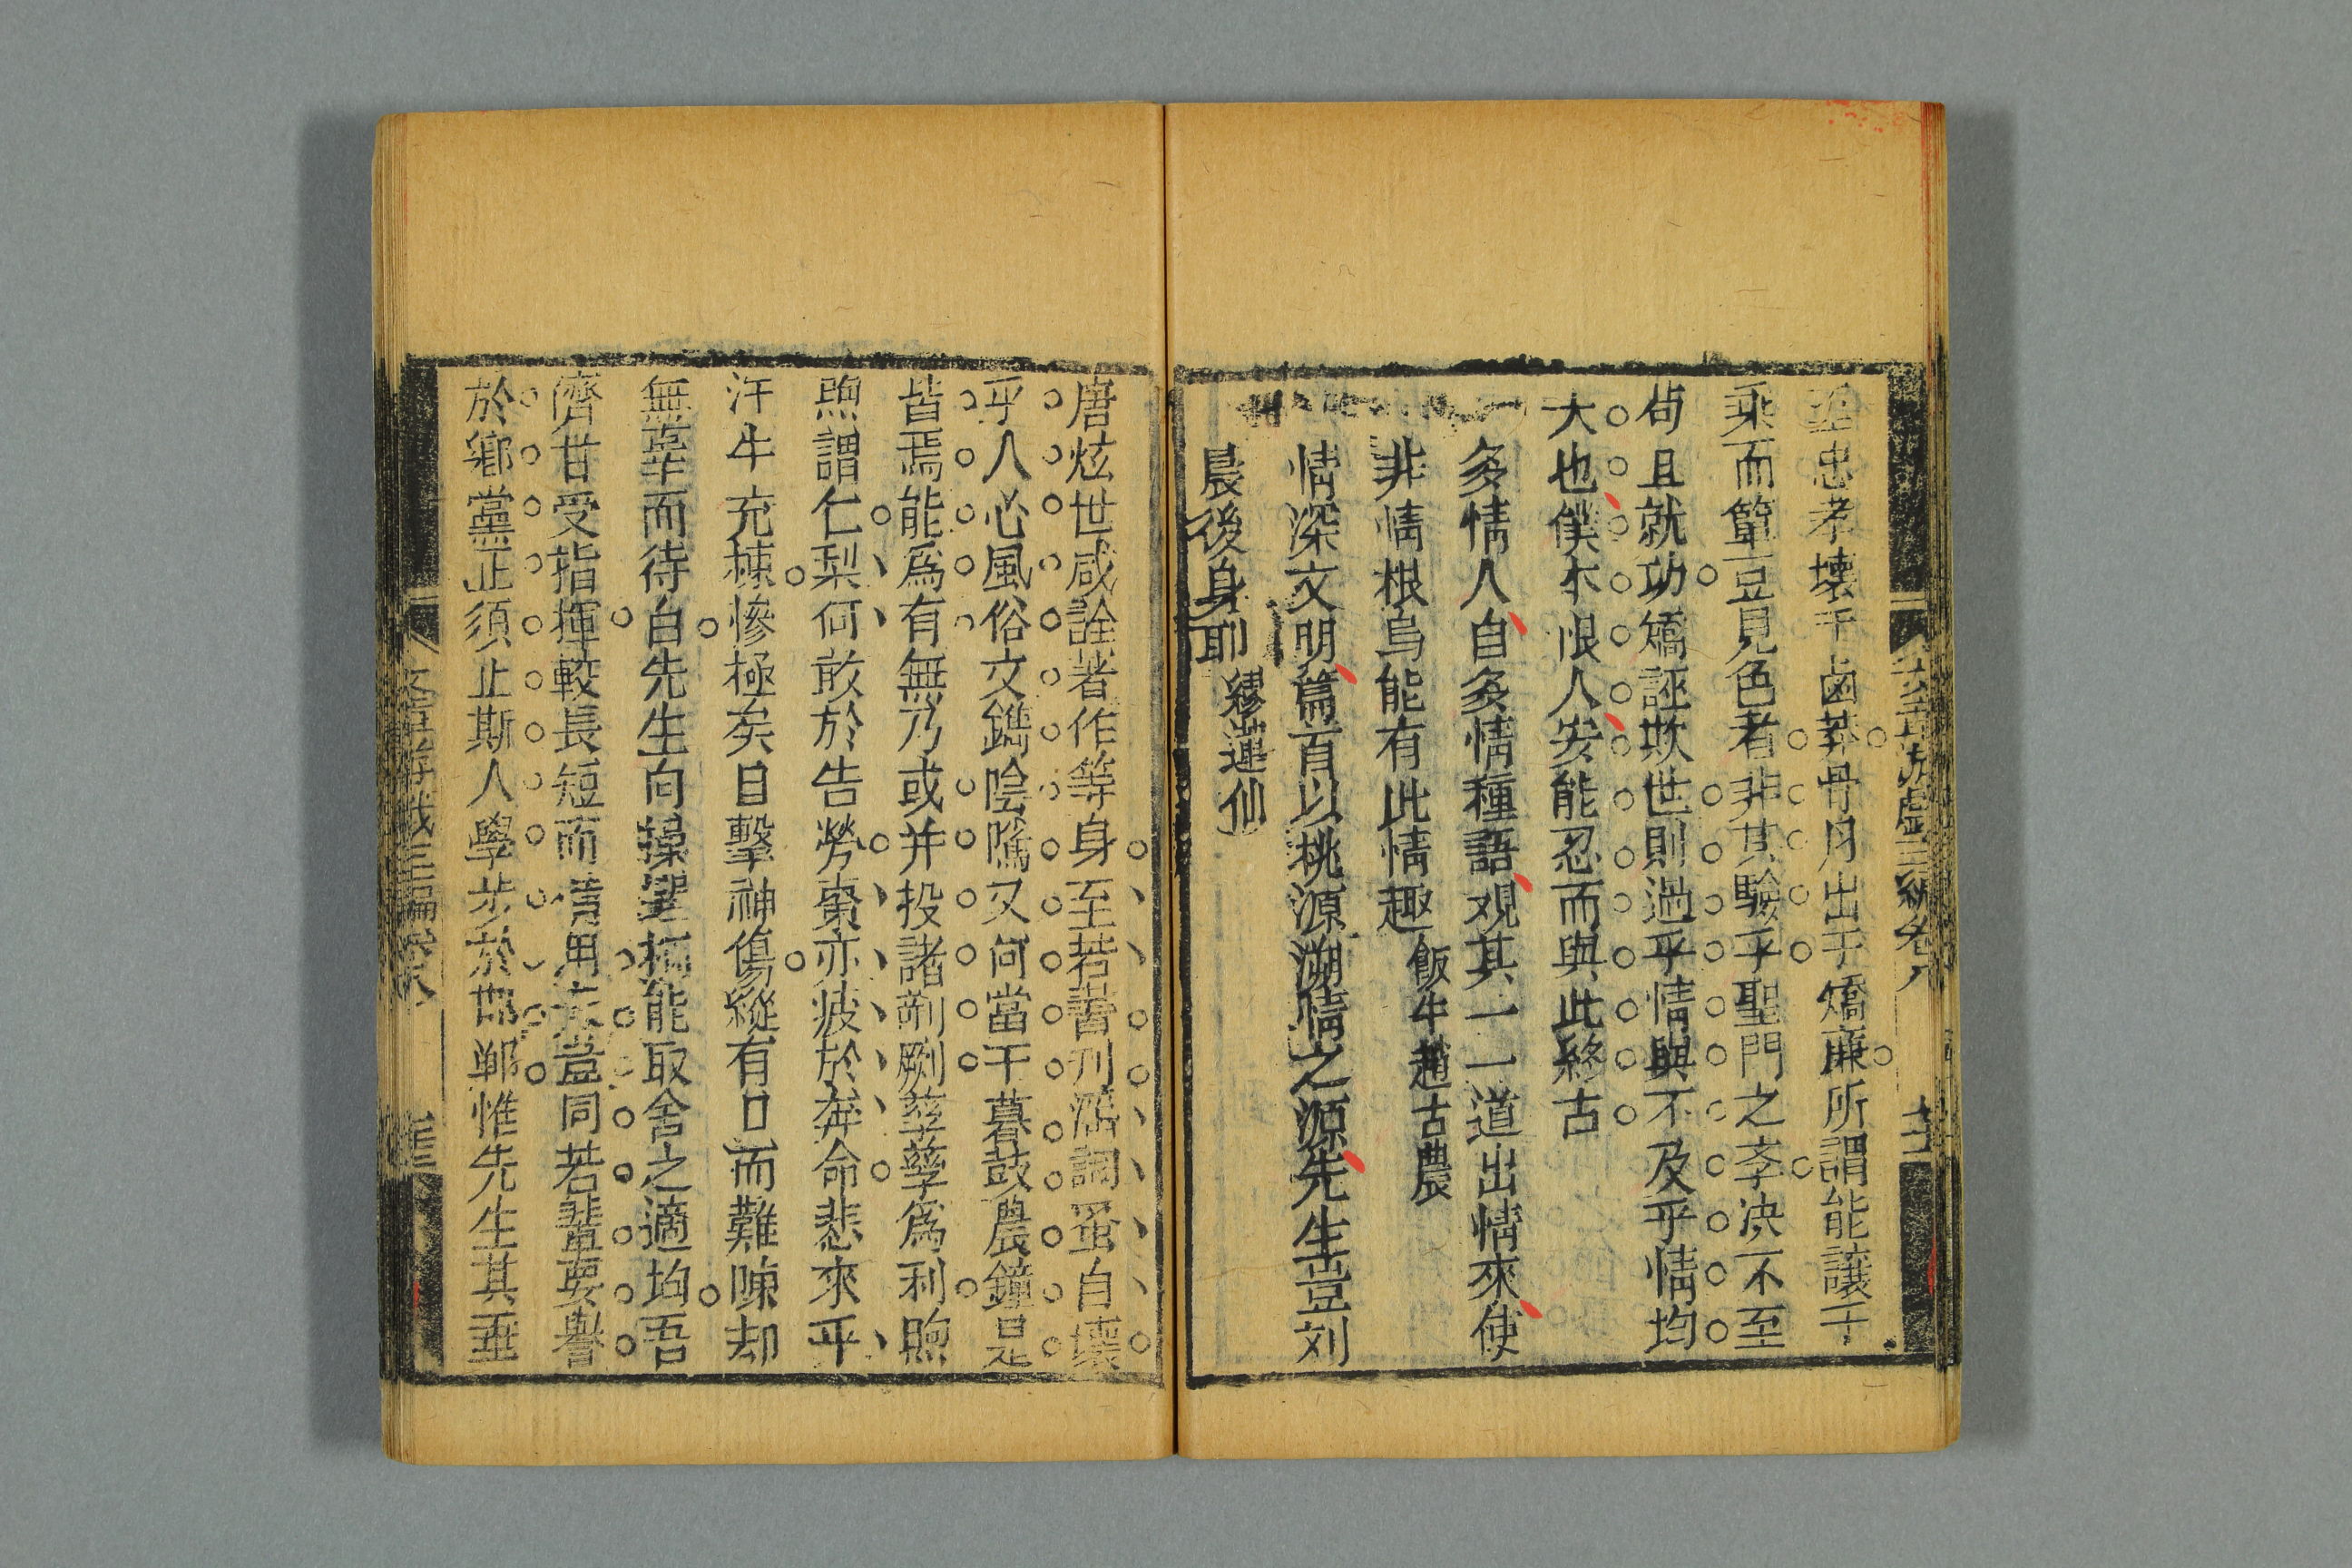 忠孝壞于鹵莽骨月出于矯廉所謂能讓千
乘而簞豆見色者非其驗乎聖門之孝決不至
苟且就功矯誣欺世則過乎情與不及乎情均
大也僕不恨人安能忍而與此終古
多情人自多情種語观其一一道出情來使
非情根烏能有此情趣 飯牛趙古農
情深文明篇首以桃源溯情之源先生豈刘
晨後身耶 繆蓮仙
文章游戲三編卷八
唐炫世咸詮著作等身至若書刊淫詞蚤自壞
乎人心風俗文鐫陰隲又何當于暮鼓晨鐘是
皆焉能爲有無乃或并投諸剞劂孳孳爲利煦
煦謂仁梨何敢於告勞棗亦疲於奔命悲來乎
汗牛充棟慘極矣目擊神傷縱有口而難陳却
無辜而待白先生向操選柄能取舍之適均吾
儕甘受指揮較長短而借用豈同若輩要譽
於鄉黨正須止斯人學步於邯鄲惟先生其垂
文章游戲三編卷八